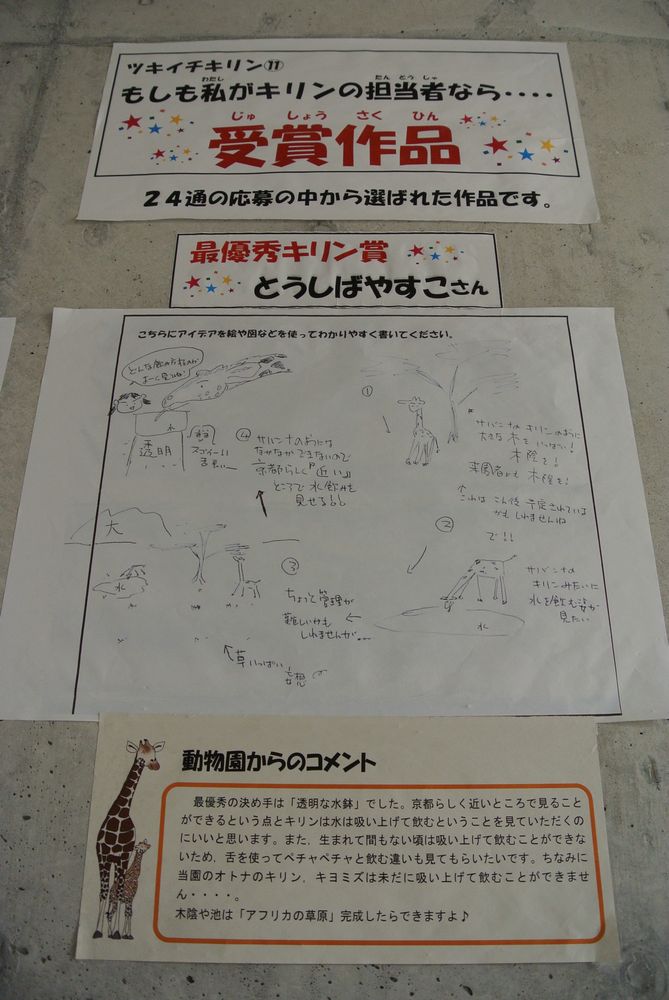 ツキイチキリン⑪
もしも私がキリンの担当者なら・・・・
わたし
たんとうしゃ
じゅしょうさくひん
受賞作品
24通の応募の中から選ばれた作品です。
最優秀キリン賞
とうしばやすこさん
こちらにアイデアを絵や図などを使ってわかりやすく書いてください。
どんな飲み方するのか
よーく見てね!
水
透明
スゴイーい
④
サバンナのようには
なかなかできないので
京都らしく『近い』
ところで水飲みを
見せる!!
①
サバンナのキリンのように
大きな木をいっぱい!
木陰を!
来園者にも木陰を!
これは こんご 予定されている
かもしれませんね
で!!
②
サバンナの
キリンみたいに
水を飲む姿が
見たい
水
大
水
③
ちょっと管理が
難しいかも
しれませんが
草いっぱい
妄想
動物園からのコメント
最優秀の決め手は「透明な水鉢」でした。京都らしく近いところで見ること
ができるという点とキリンは水は吸い上げて飲むということを見ていただくの
にいいと思います。また、生まれて間もない頃は吸い上げて飲むことができな
いため、舌を使ってペチャペチャと飲む違いも見てもらいたいです。ちなみに
当園のオトナのキリン、キヨミズは未だに吸い上げて飲むことができませ
ん・・・・。
木陰や池は「アフリカの草原」完成したらできますよ♪